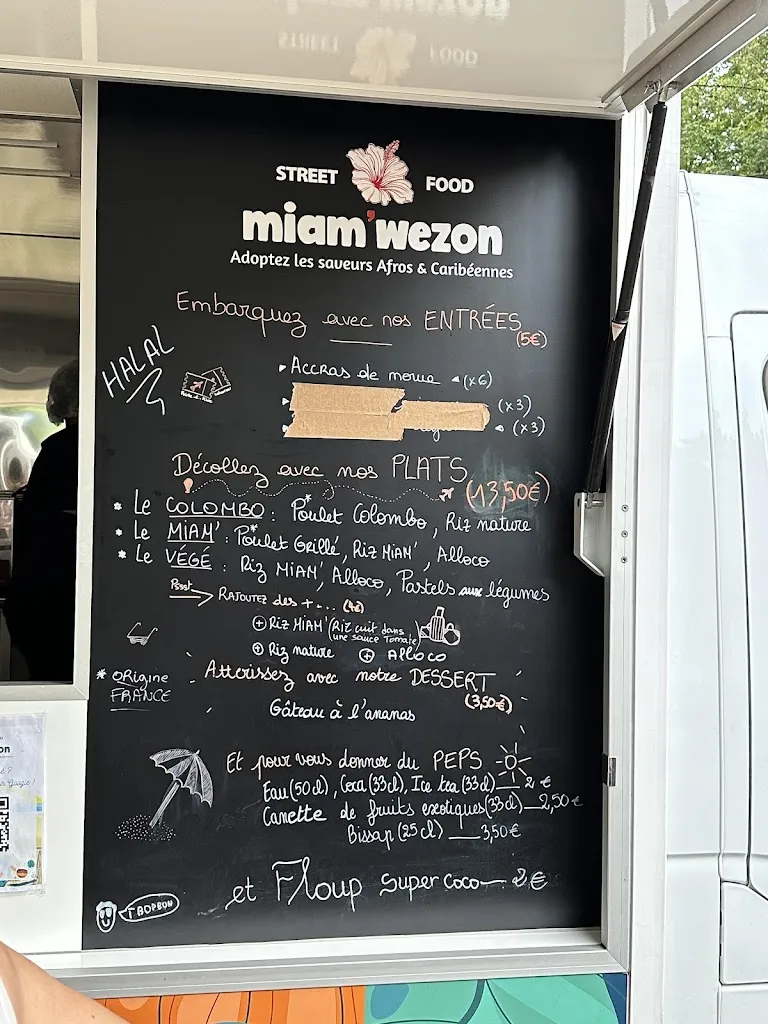 STREET FOOD
miam'wezon
Adoptez les saveurs Afros & Caribéennes
Embarquez avec nos ENTRÉES
(5€)
HALAL
Accras de morue (x6)
(x3)
(x3)
Décollez avec nos PLATS
(13,50€)
* Le COLOMBO : Poulet* Colombo, Riz nature
* Le MIAM' : Poulet* Grillé, Riz MIAM', Alloco
* Le VÉGÉ : Riz MIAM', Alloco, Pastels aux légumes
Pssst → RAJOUTEZ des + ... (4€)
+ Riz MIAM' (Riz cuit dans
une sauce Tomate)
+ Riz nature + Alloco
* ORigine
FRANCE
Atterissez avec notre DESSERT
(3,50€)
Gâteau à l'ananas
Et pour vous donner du PEPS
Eau (50cl), Coca (33cl), Ice tea (33cl) — 2 €
Canette de fruits exotiques (33cl) — 2,50€
Bissap (25 cl) — 3,50€
et Floup super coco — 2€
T BORBON